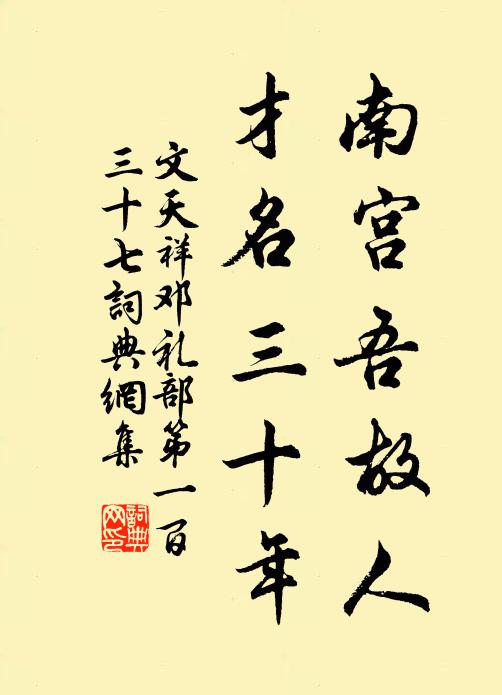 南宫吾故人
才名三十年
文天祥邓礼部第一百
三十七詞典網集
詞典
网印